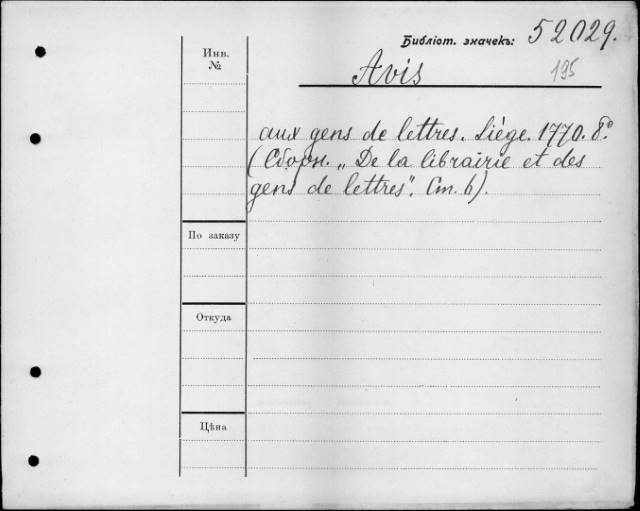 Библіот. значекъ: 52029.
Инв. №
Avis
195
aux gens de lettres. Liége. 1770. 8º
(Сборн. „De la librairie et des
gens de lettres". Ст. 6).
По заказу
Откуда
Цѣна